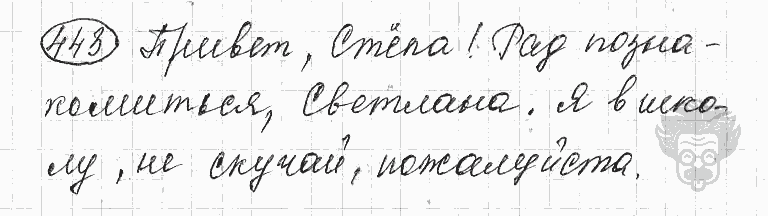 443 Привет, Стёпа! Рад позна-
комиться, Светлана. Я в шко-
лу, не скучай, пожалуйста.